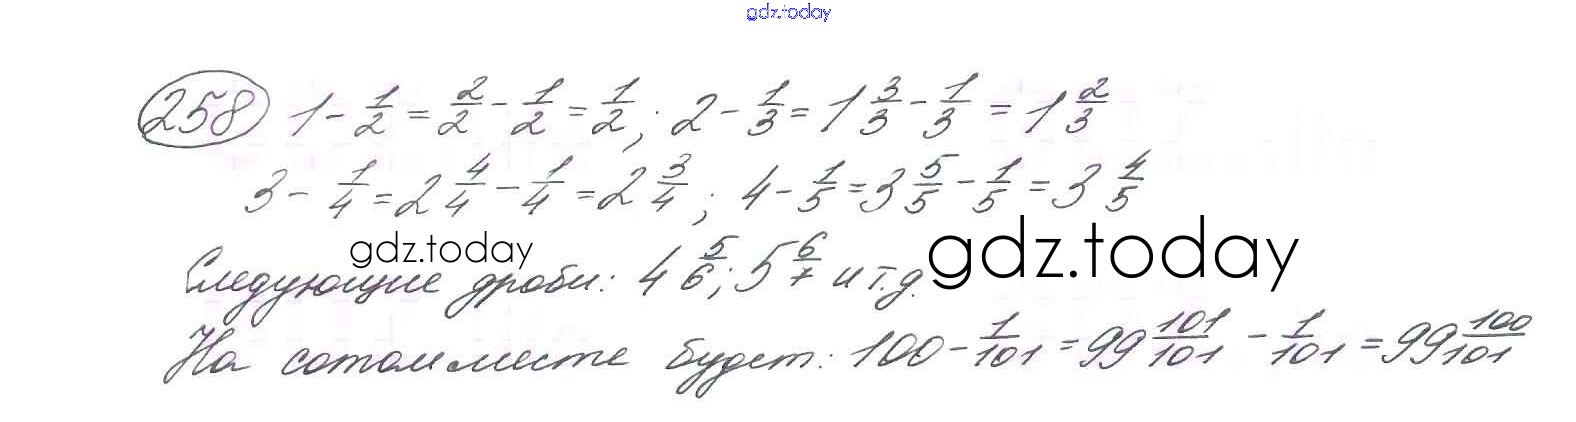 gdz.today
258 1 - 1/2 = 2/2 - 1/2 = 1/2; 2 - 1/3 = 1 3/3 - 1/3 = 1 2/3
3 - 1/4 = 2 4/4 - 1/4 = 2 3/4; 4 - 1/5 = 3 5/5 - 1/5 = 3 4/5
gdz.today gdz.today
Следующие дроби: 4 5/6; 5 6/7 и т.д.
На сотом месте будет: 100 - 1/101 = 99 101/101 - 1/101 = 99 100/101